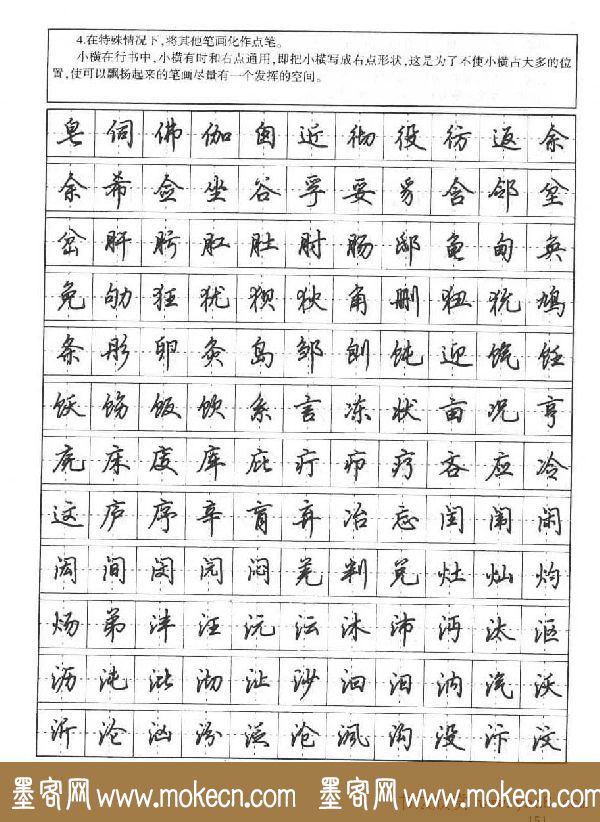 4.在特殊情况下,将其他笔画化作点笔。
小横在行书中,小横有时和右点通用,即把小横写成右点形状,这是为了不使小横占大多的位
置,使可以飘扬起来的笔画尽量有一个发挥的空间。
皂伺佛伽囱近彻役彷返余
余希佥坐谷孚妥豸含邻坌
岔肝肟肛肚肘肠邸龟甸奂
免劬狂犹狈狄角删狃犹鸠
条彤卵灸岛邹刨饨迎饩饪
饫饬饭饮系言冻状亩况亨
庑床庋库庇疔疖疗吝应冷
这庐序辛肓弃冶忘闰闱闲
闳间闵闶闷羌判兑灶灿灼
炀弟沣汪沅沄沐沛沔汰沤
沥沌沘沏沚沙汩汨汭汽沃
沂沦汹汾泛沧沨沟没汴汶
墨客网 www.mokecn.com 墨客网 www.mokecn.com
151